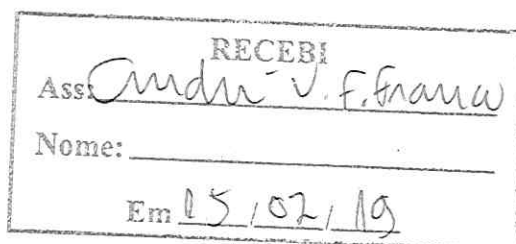 RECEBI
Ass: André V. F. França
Nome:
Em 15/02/19